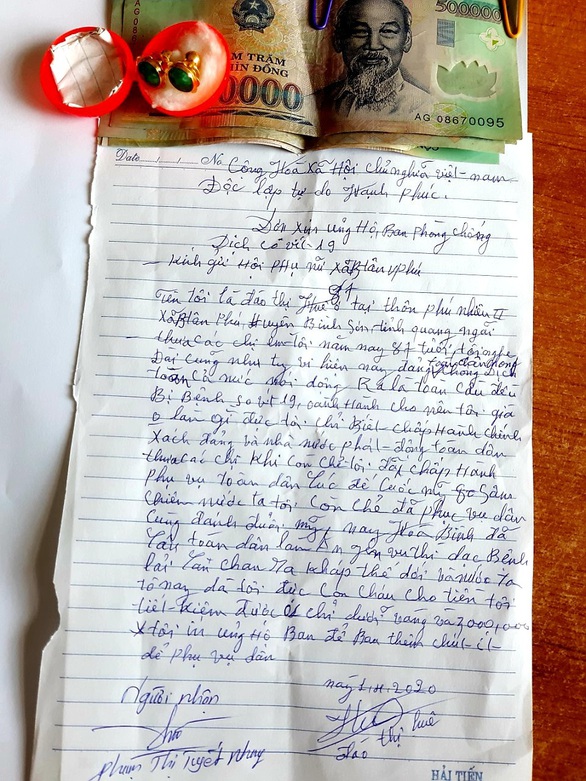 500000
M TRĂM
HÌN ĐỒNG
0.000
AG 08670095
Date / / No Công Hoá Xã Hội Chủ nghĩa việt-nam
Độc lập tự do Hạnh phúc.
Đơn Xin ủng Hộ, Ban phòng chống
Dịch cô vit-19
Kính gửi Hôi phụ nữ xã Bình tân phú
Tên tôi là đào thị Huê ở tại thôn phú nhiêu II
Xã Bình tân Phú Huyện Bình Sơn, tỉnh quang ngãi
thưa các chị em tôi năm nay 84 tuổi
Đai cũng như ty vi hiện nay đảng
cả nước nói đồng Ra là toàn cầu đều
Bị Bệnh cô vit 19, oánh Hành cho nên tôi già
o làm gì đực tôi chỉ Biết chấp Hành chính
Xách đảng và nhà nước phát-động toàn dân
thưa các chị khi còn chẻ tôi đã chấp Hành
phụ vụ toàn dân lúc đế Cuốc
chiếm nước ta tôi còn chẻ đã phục vụ dân
Cung đánh đuổi mỹ, nay Hoà Bình đã
lâu toàn dân làm Ăn yên vui thì dạc Bệnh
lai lan chan Ra kháp thế dới và nước ta
tô nay đã tôi đực con cháu cho tiền tôi
tiết-kiệm được chỉ dưới vàng và 2000,000
x tôi in ủng Hộ Ban để Ban thêm chút-ít-
để phụ vụ dân
Người nhận
Phạm Thị Tuyết Nhung
này 1.4.2020
Huê
Đào thị Huê
HẢI TIẾN